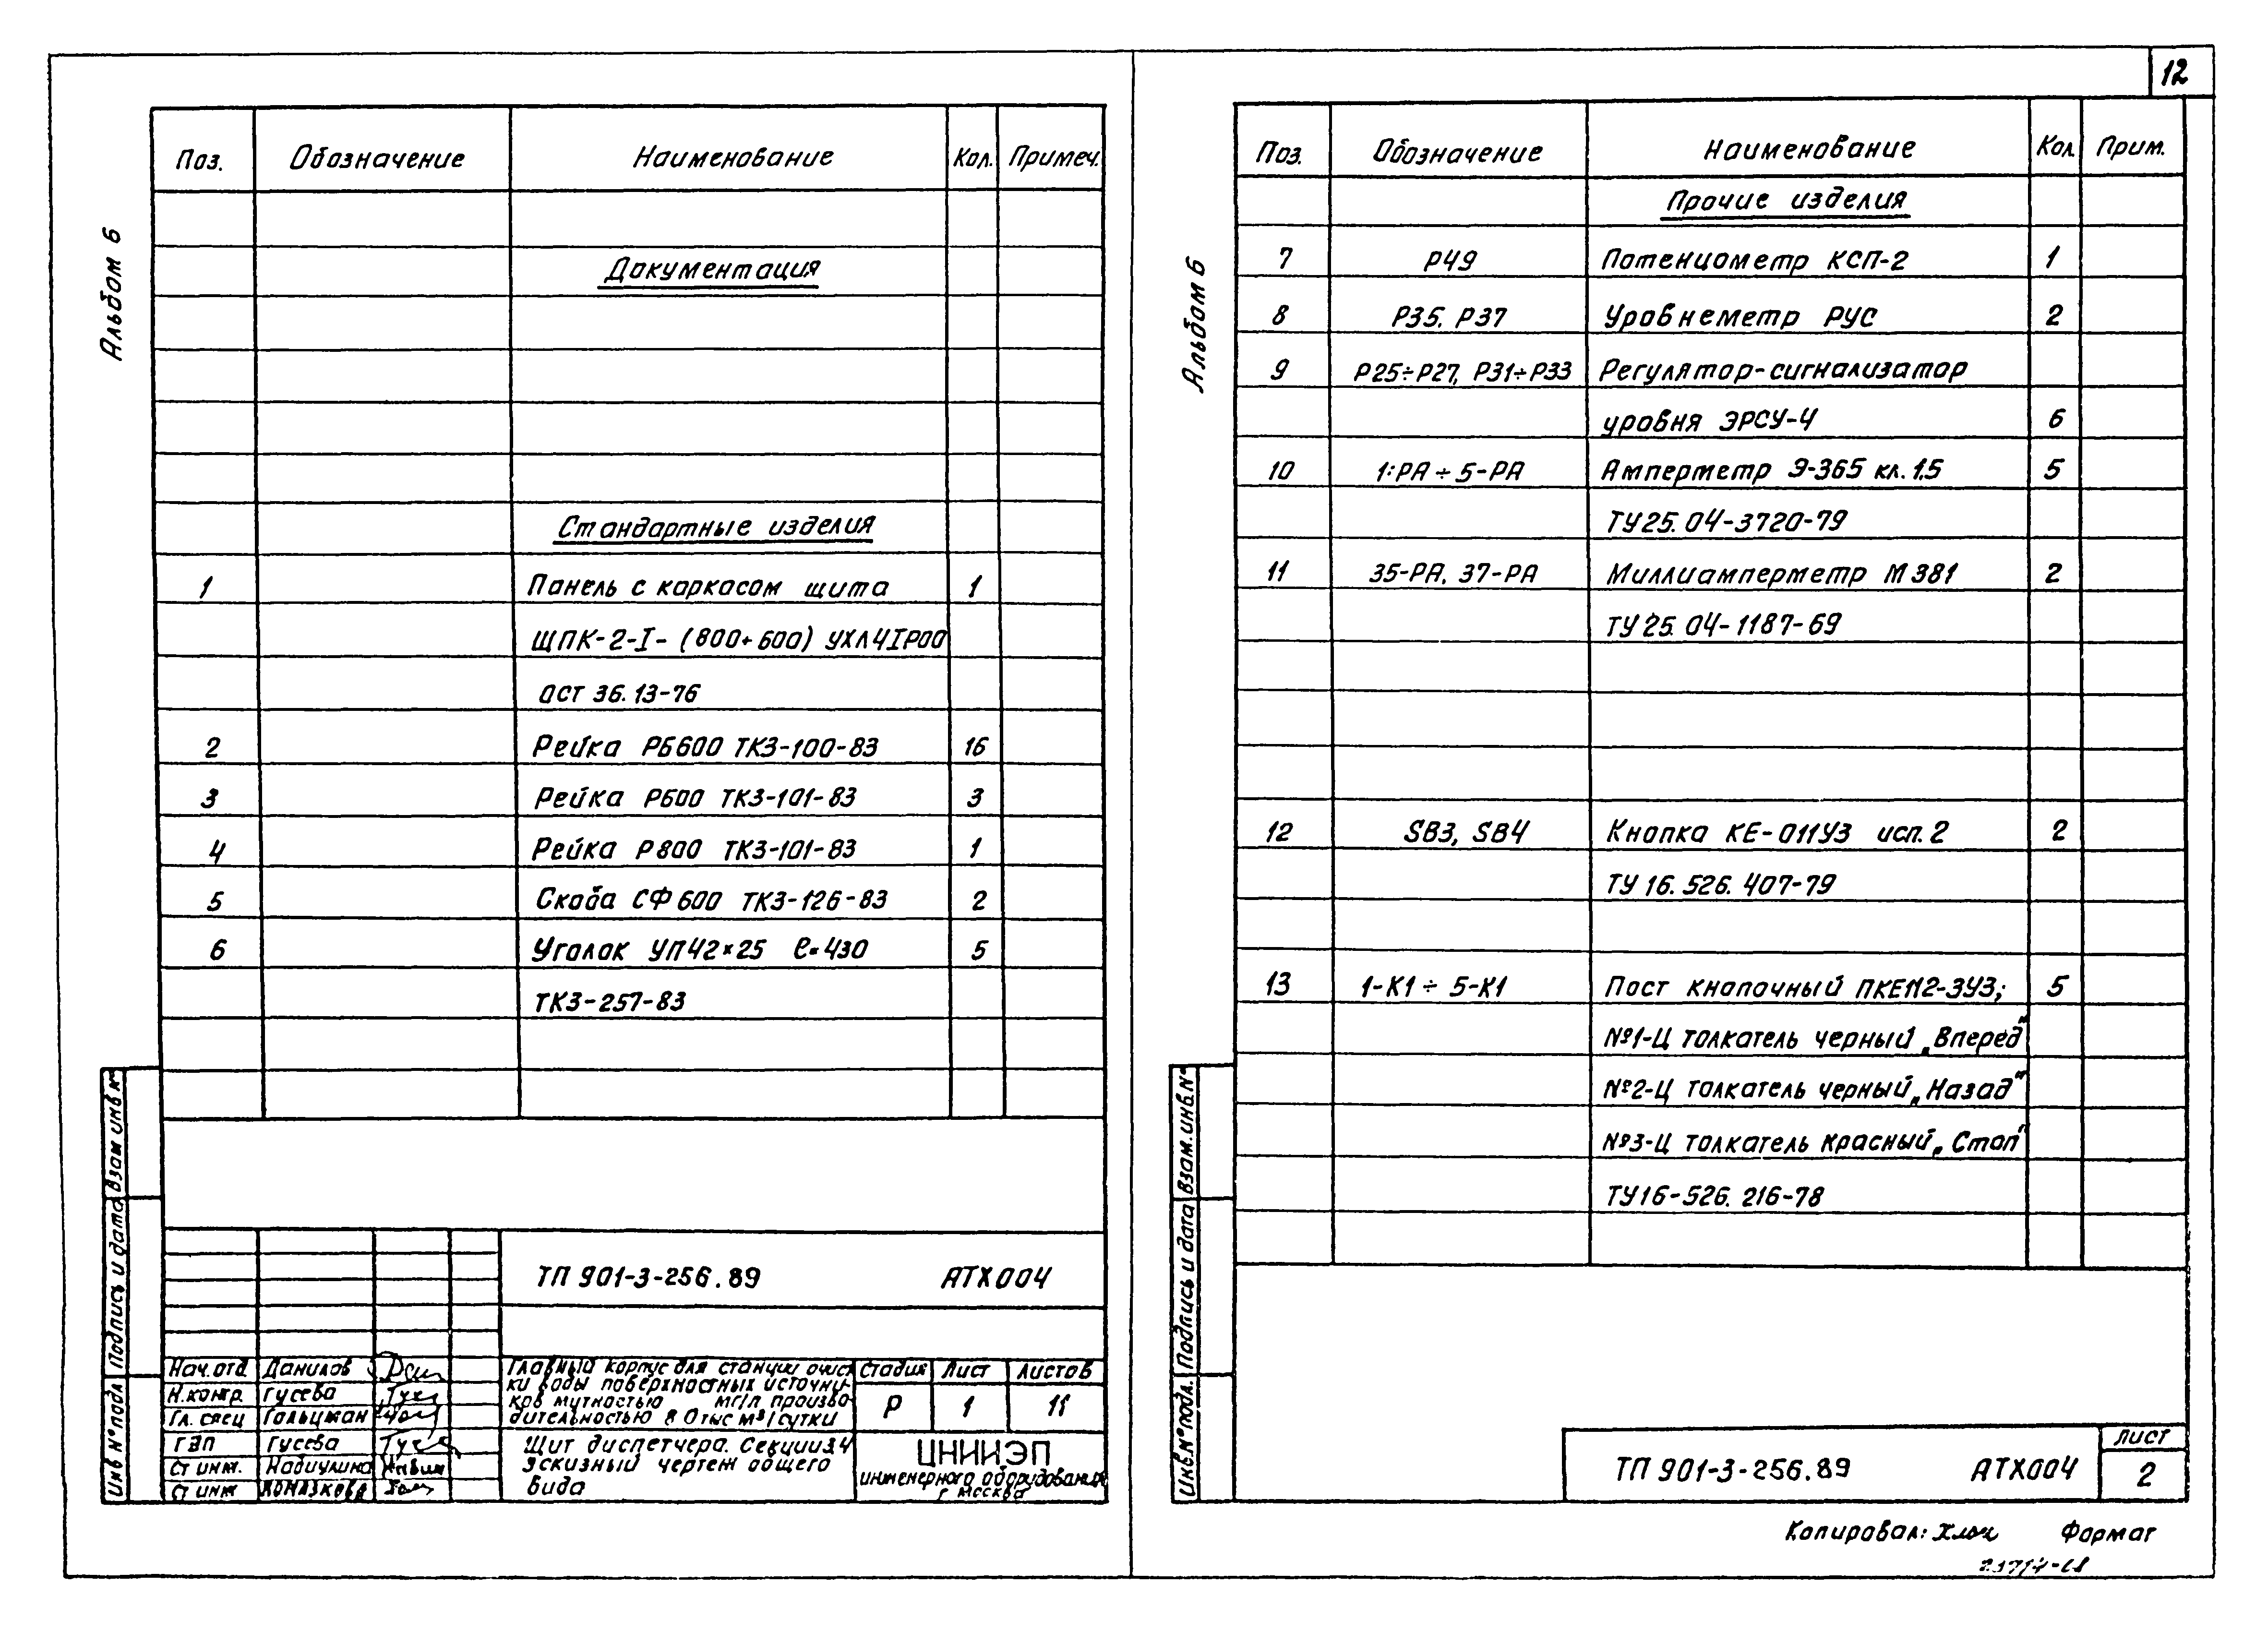 12
Альбом 6
Поз. Обозначение Наименование Кол. Примеч.
Документация
Стандартные изделия
1 Панель с каркасом щита 1
ЩПК-2-I-(800+600) УХЛ4IP00
ОСТ 36.13-76
2 Рейка РБ600 ТК3-100-83 16
3 Рейка Р600 ТК3-101-83 3
4 Рейка Р800 ТК3-101-83 1
5 Скоба СФ600 ТК3-126-83 2
6 Уголок УП42×25 ℓ=430 5
ТК3-257-83
Взам инв №
Подпись и дата
Инв № подл
ТП 901-3-256.89 АТХ004
Нач. отд Данилов
Н.контр. Гусева
Гл. спец Гольцман
ГЭП Гусева
Ст инж. Набиулина
Ст инж
Главный корпус для станции очист
ки воды поверхностных источни-
ков мутностью мг/л произво
дительностью 8 0 тыс м³/сутки
Стадия Лист Листов
Р 1 11
Щит диспетчера. Секции 3,4
Эскизный чертеж общего
вида
ЦНИИЭП
инженерного оборудования
г Москва
Альбом 6
Поз. Обозначение Наименование Кол. Прим.
Прочие изделия
7 Р49 Потенциометр КСП-2 1
8 Р35. Р37 Уровнеметр РУС 2
9 Р25÷Р27, Р31÷Р33 Регулятор-сигнализатор
уровня ЭРСУ-4 6
10 1-РА ÷ 5-РА Амперметр Э-365 кл. 1,5 5
ТУ25.04-3720-79
11 35-РА, 37-РА Миллиамперметр М381 2
ТУ 25.04-1187-69
12 SB3, SB4 Кнопка КЕ-011У3 исп. 2 2
ТУ 16.526.407-79
13 1-К1 ÷ 5-К1 Пост кнопочный ПКЕ112-3У3; 5
№1-Ц толкатель черный „Вперед"
№2-Ц толкатель черный „Назад"
№3-Ц толкатель красный „Стоп"
ТУ16-526.216-78
Взам.инв.№
Подпись и дата
Инв.№ подл.
ТП 901-3-256.89 АТХ004
Лист
2
Копировал: Формат